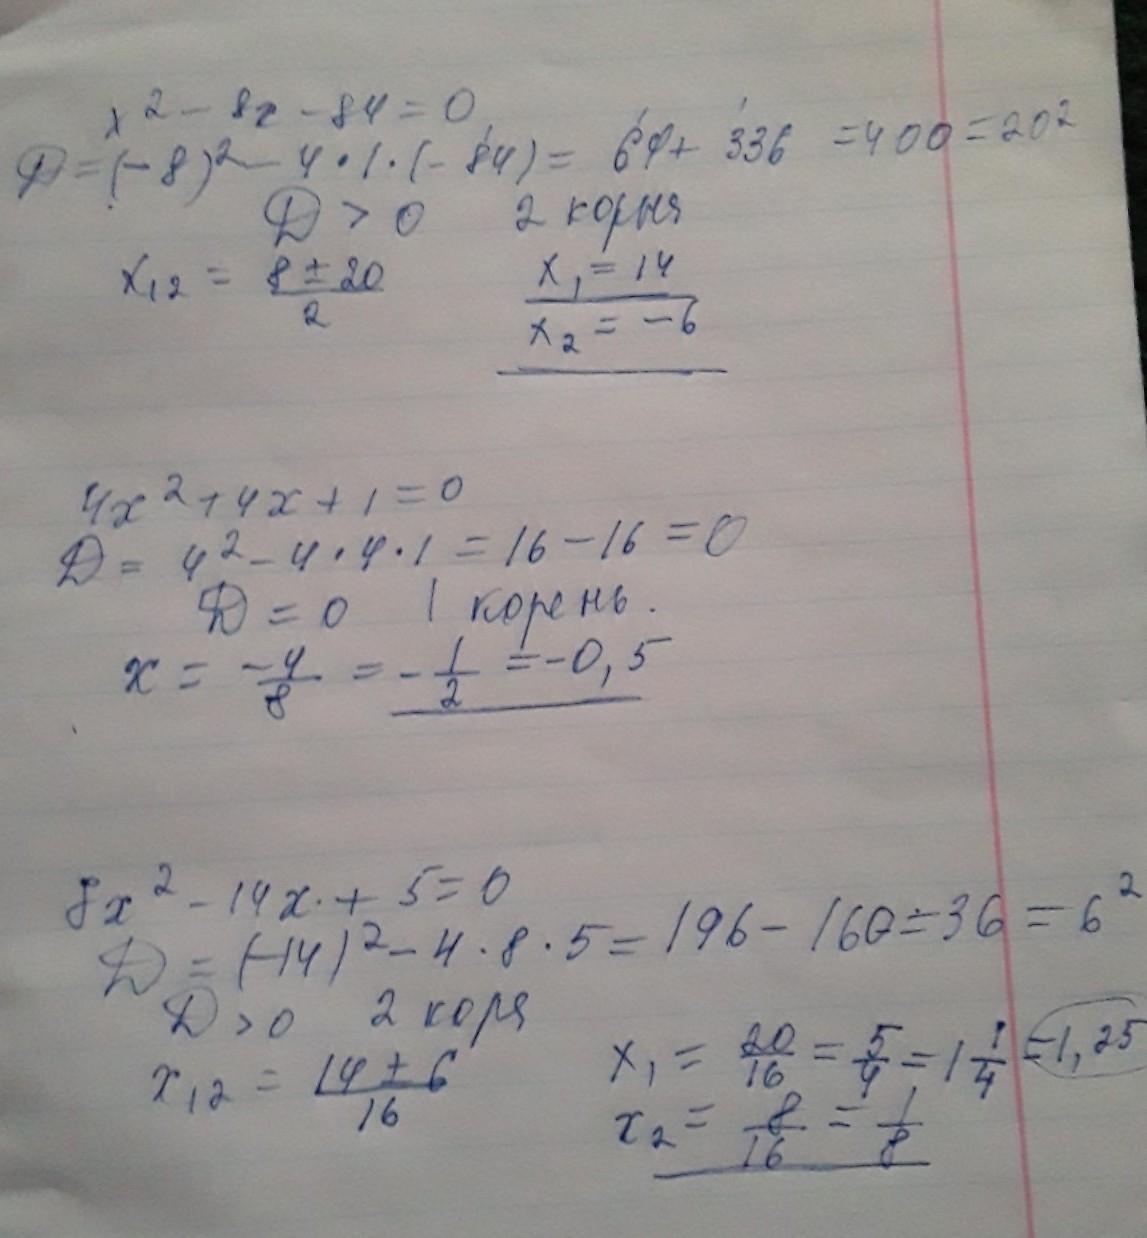 x² - 8x - 84 = 0
D = (-8)² - 4·1·(-84) = 64 + 336 = 400 = 20²
D > 0 2 корня
x₁₂ = (8 ± 20)/2 x₁ = 14
x₂ = -6
4x² + 4x + 1 = 0
D = 4² - 4·4·1 = 16 - 16 = 0
D = 0 1 корень.
x = -4/8 = -1/2 = -0,5
8x² - 14x + 5 = 0
D = (-14)² - 4·8·5 = 196 - 160 = 36 = 6²
D > 0 2 коря
x₁₂ = (14 ± 6)/16 x₁ = 20/16 = 5/4 = 1 1/4 = 1,25
x₂ = 8/16 = 1/8